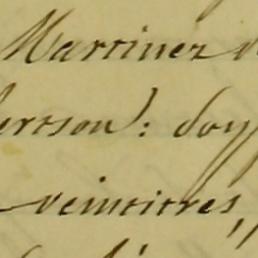 Martinez
ertson): doy
veintitres,